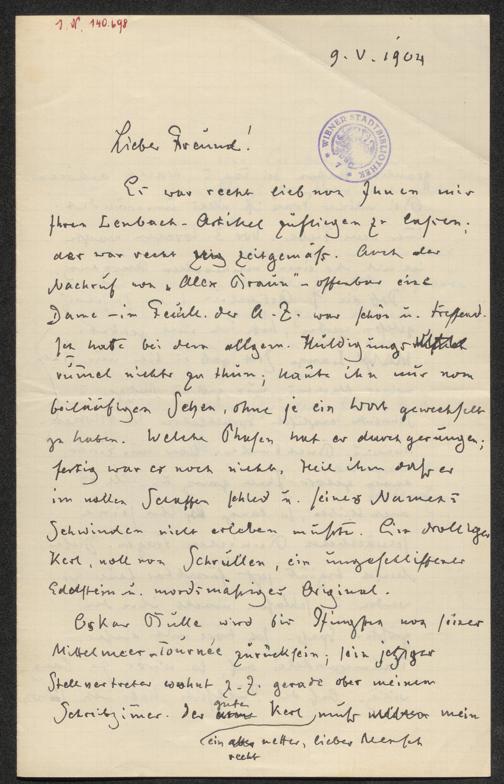 J. N. 140.698
9. V. 1904
WIENER STADTBIBLIOTHEK
Lieber Freund!
Es war recht lieb von Ihnen mir
Ihren Lenbach-Artikel zufliegen zu lassen;
das war recht zeitgemäß. Auch der
Nachruf von „Alex Braun" – offenbar eine
Dame – in Feuill. der A. Z. war schön u. treffend.
Ich hatte bei dem allgem. Huldigungs
rummel nichts zu thun; kannte ihn nur vom
beiläufigen Sehen, ohne je ein Wort gewechselt
zu haben. Welche Phasen hat er durchgerungen;
fertig war er noch nicht, Heil ihm daß er
im vollen Schaffen schied u. seines Namens=
Schwinden nicht erleben mußte. Ein drolliger
Kerl, voll von Schrullen, ein ungeschliffener
Edelstein u. mordsmäßiges Original.
Oskar Bulle wird bis Pfingsten von seiner
Mittelmeer-Tournée zurücksein; sein jetziger
Stellvertreter wohnt z. Z. gerade ober meinem
Schreibzimer. Der gute Kerl muß mein
ein recht netter, lieber Mensch